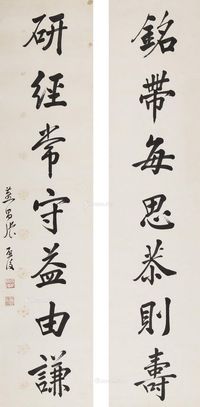 銘帶每思恭則壽
研經常守益由謙